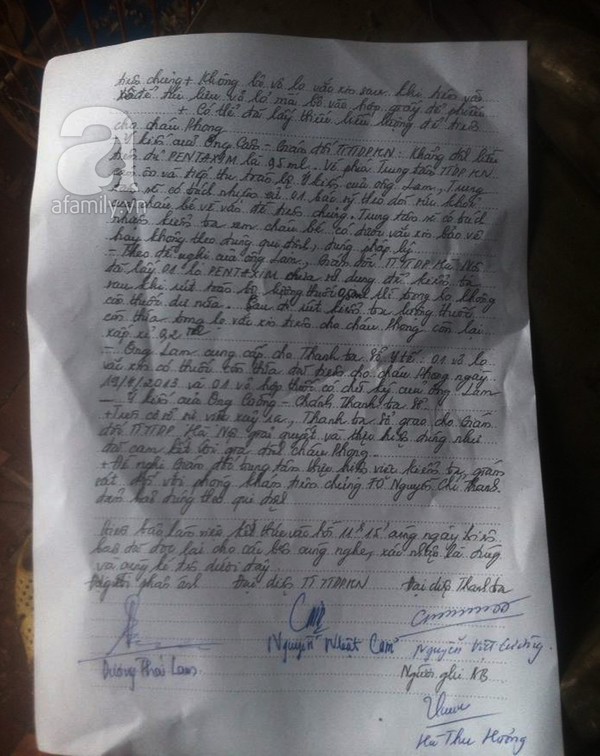 tiêm chủng + Không bỏ vỏ lọ vắc xin sau khi tiêm vào
để thu liều vỏ lọ mà bỏ vào hộp giấy để
+ Có thể đã lấy thiếu liều lượng để tiêm
cho cháu Phong
Ý kiến của Ông Cảm - Giám đốc TTYTDPHN: Khẳng định liều
tiêm đủ PENTAXIM là 0,5ml. Về phía Trung tâm YTDP HN
và tiếp thu toàn bộ ý kiến của ông Lam, Trung
tâm sẽ có trách nhiệm cử 01 bác sỹ theo dõi sức khỏe
cháu bé về vấn đề tiêm chủng. Trung tâm sẽ có trách
nhiệm kiểm tra xem cháu bé có được vắc xin bảo vệ
hay không theo đúng qui định, đúng pháp lý.
- Theo đề nghị của ông Lam, Giám đốc TTYTDP Hà Nội
đã lấy 01 lọ PENTAXIM chưa sử dụng để kiểm tra
sau khi rút toàn bộ lượng thuốc 0,5ml thì trong lọ không
còn thuốc dư nữa. Sau đó rút kiểm tra lượng thuốc
còn thừa trong lọ vắc xin tiêm cho cháu Phong còn lại
xấp xỉ 0,2 ml
- Ông Lam cung cấp cho Thanh tra Sở Y tế: 01 vỏ lọ
vắc xin có thuốc còn thừa đã tiêm cho cháu Phong ngày
19/8/2013 và 01 vỏ hộp thuốc có chữ ký của ông Lam
- Ý kiến của Ông Cường - Chánh Thanh tra Sở:
+ Trên cơ sở sự việc xảy ra, Thanh tra Sở giao cho Giám
đốc TTYTDP Hà Nội giải quyết và thực hiện đúng như
đã cam kết với gia đình cháu Phong.
+ Đề nghị Giám đốc trung tâm thực hiện việc kiểm tra, giám
sát đối với phòng khám tiêm chủng 70 Nguyễn Chí Thanh
đảm bảo đúng theo qui định
Biên bản làm việc kết thúc vào hồi 11h15' cùng ngày, biên
bản đã đọc lại cho các bên cùng nghe, xác nhận là đúng
và cùng ký tên dưới đây
Người phản ánh Đại diện TTYTDPHN Đại diện Thanh tra
Dương Thái Lam Nguyễn Nhật Cảm Nguyễn Việt Cường
Người ghi BB
Hà Thu Hương
a
afamily.vn